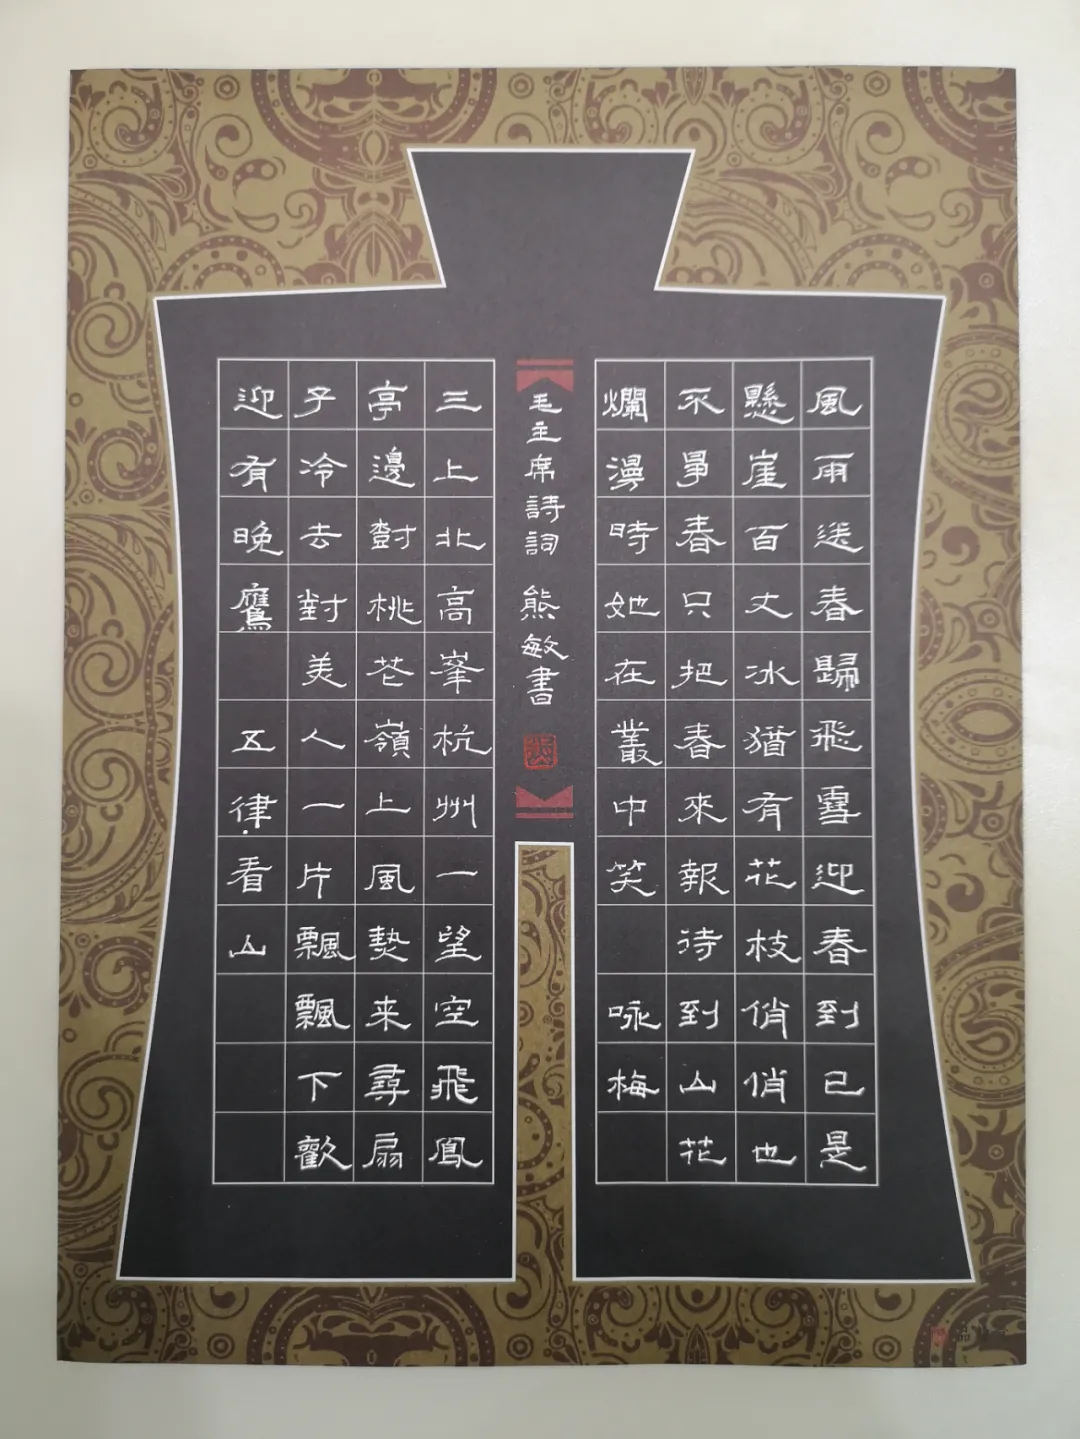 風雨送春歸飛雪迎春到已是
懸崖百丈冰猶有花枝俏俏也
不爭春只把春來報待到山花
爛漫時她在叢中笑 咏梅
毛主席詩詞 熊敏書
三上北高峯杭州一望空飛鳳
亭邊對桃花嶺上風熱来尋扇
子冷去對美人一片飄飄下歡
迎有晚鷹 五律看山